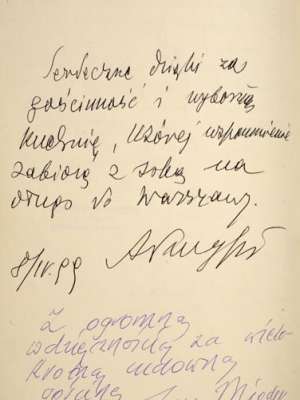 Serdeczne dzięki za
gościnność i wyborną
kuchnię, której wspomnienie
zabiorę z sobą na
długo do Warszawy.
8/IV.99
Z ogromną
wdzięcznością za wielo
krotną cudowną